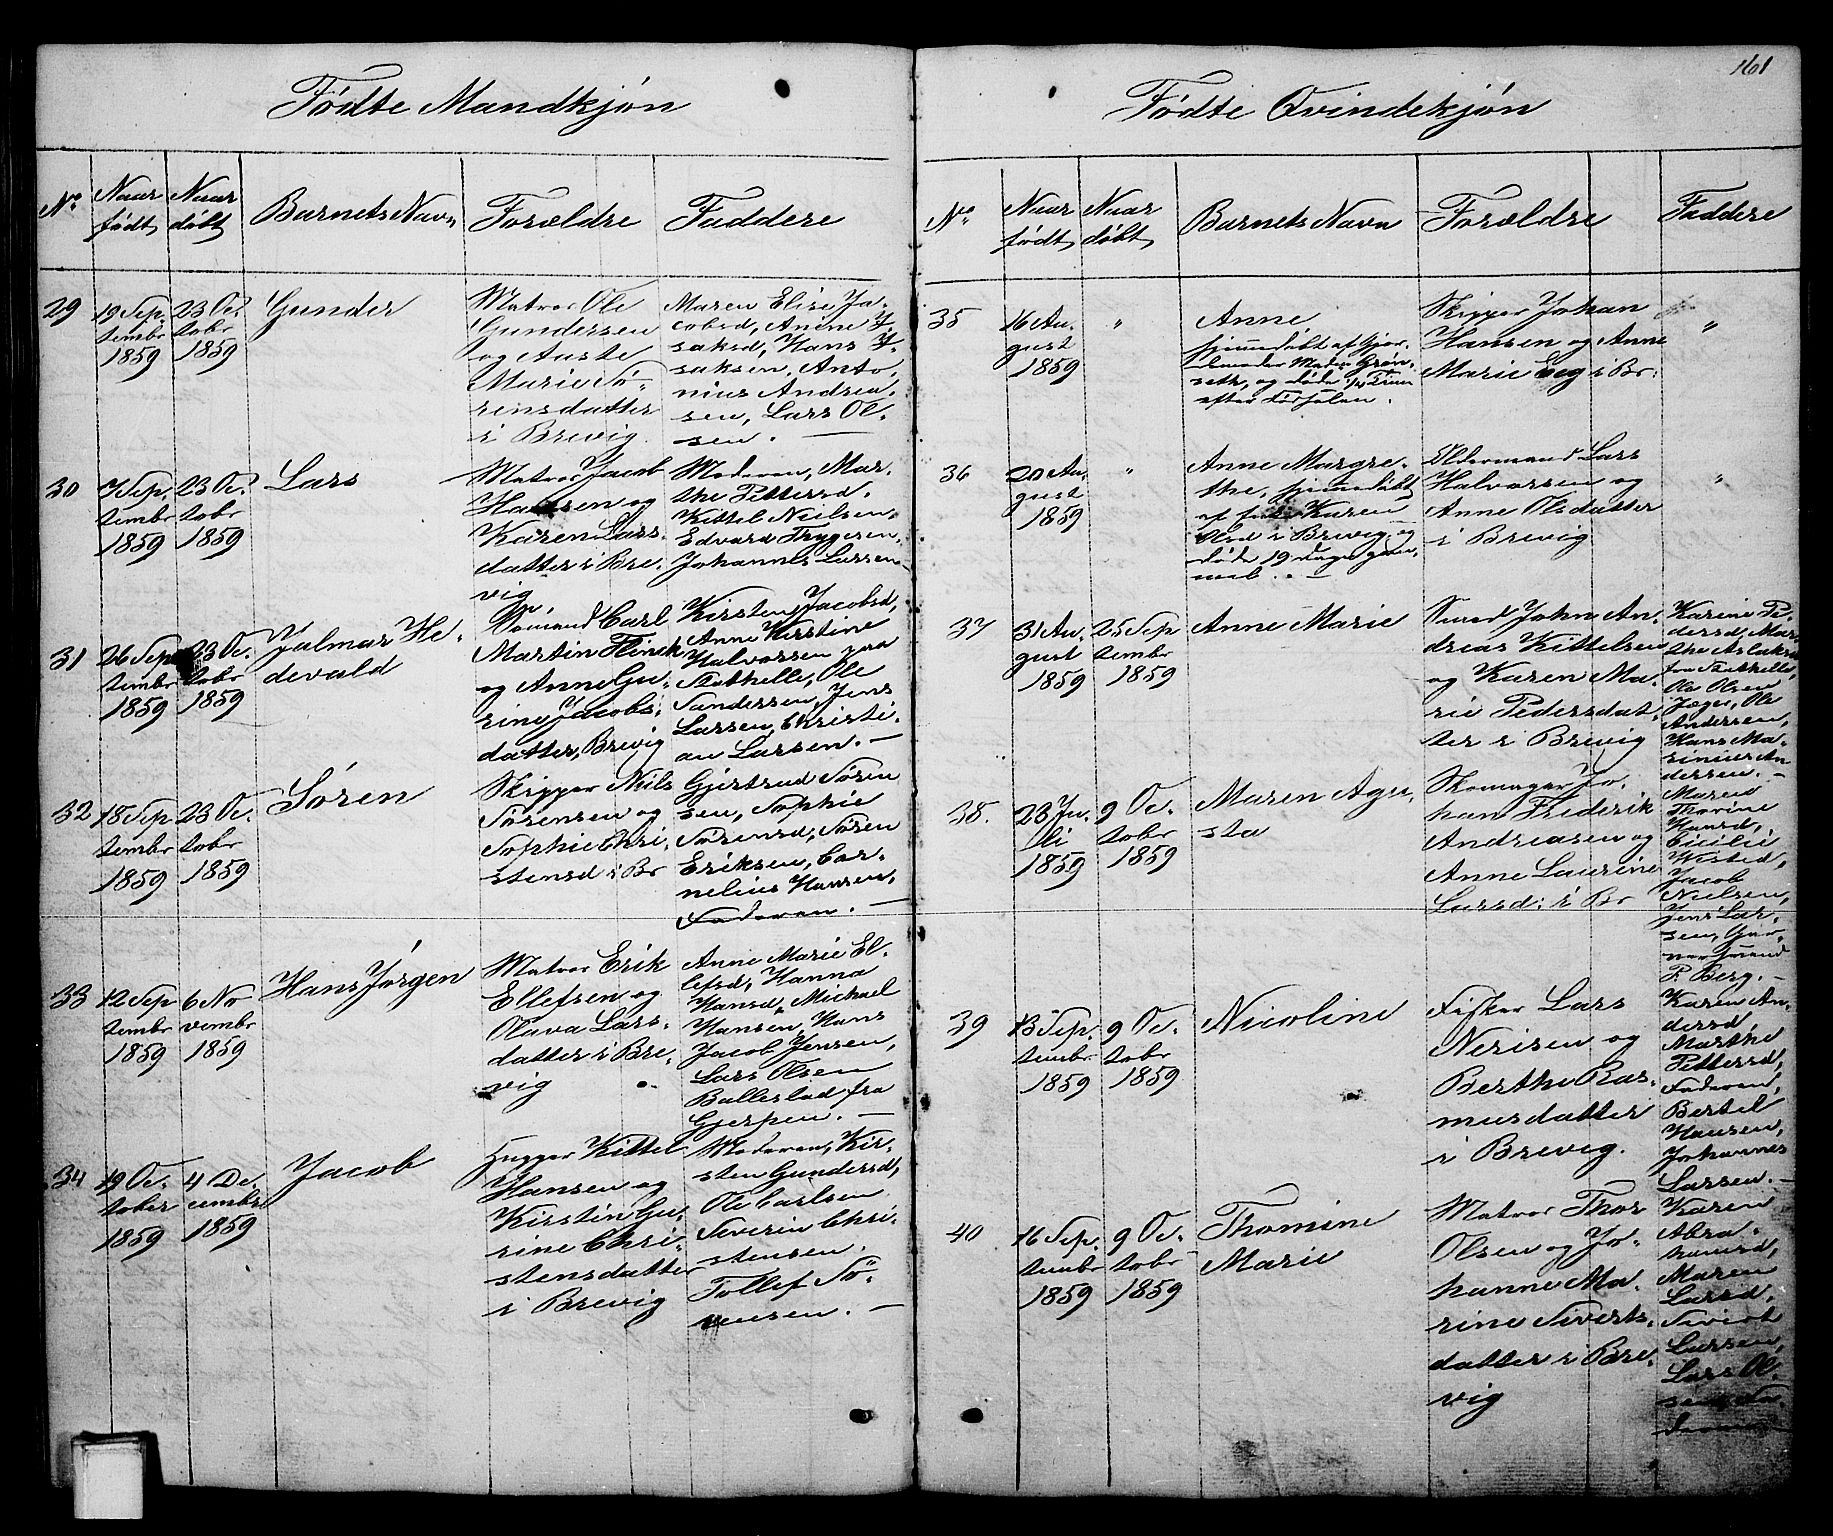 Fødte Mandkjøn
No
Naar født,
Naar døbt,
Barnets Navn,
Forældre
Faddere
29
19 Sep.
tembr
1859
23 Oc.
tobr
1859
Gunder
Matros Ole
Gundersen
og Aaste
Marie Sø-
rensdatter
i Brevig.
Maren Elise Ja-
cobsd, Anne I-
saksd, Hans I-
saksen, Anto,
nius Andrea-
sen, Lars Ol-
sen.
30
7 Sep.
tembr
1859
23 Oc.
tobr
1859
Lars
Matros Jacob
og
Karen Lars-
datter i Bre-
vig
Moderen, Mar-
the Pettersd.
Kittel Nielsen.
Edvard Trygesen,
Johannes Larsen
31
26 Sep
tembr
1859
23 Oc.
tobr
1859
Jalmar He-
devald
Carl
Martin
og Anne Gu-
rine Jacobs-
datter, Brevig
Kirsten Jacobsd,
Anne Kirstine
Halvorsen paa
Stathelle, Ole
Sandersen, Jens
Larsen, Christi-
an Larsen.
32
18 Sep
tembr
1859
23 Oc.
tobr
1859
Søren
Skipper Niels
Sørensen og
Sophie Chri-
stensd i Br
Gjertrud Søren
sen, Sophie
Sørensd, Søren
Eriksen, Cor-
nelius Hansen,
Faderen.
33
12 Sep
tembr
1859
6 No
vembr
1859
Hans Jørgen
Matros Erik
Ellefsen og
Olava Lars-
datter i Bre-
vig
Anne Marie El-
lefsd, Hanna
Hansd, Michael
Hansen, Hans
Jacob Jensen,
Lars Olsen
Ballestad fra
Gjerpen.
34
19 Oc-
tober
1859
4 De-
cembr
1859
Jacob
Kittel
Hansen og
Kirstin Gu-
rine Chri-
stensdatter
i Brevig
Moderen, Kir-
sten Gundersd,
Ole Carlsen
Severin Chri-
stensen.
Tollef Sö-
rensen.
161
Fødte Qvindekjøn
No
Naar født,
Naar døbt,
Barnets Navn
Forældre
Faddere
35
16 Au.
gust
1859
"
Anne
hjemmedøbt af Gjor-
demoder Grøn-
seth, og døde Time
efter Fødselen.
Skipper Johan
Hansen og Anne
Marie i Br:
"
36
20 Au,
gust
1859
"
Anne Margre-
the, hjemmedøbt
af Karen
Olsd i Brevig, og
døde 19 dage gam-
mel.
Oldermand Lars
Halvorsen og
Anne Olsdatter
i Brevig
"
37
31 Au-
gust
1859
25 Sep
tembr
1859
Anne Marie
Smed John An-
dreas Kittelsen
og Karen Ma-
rie Pedersdat-
ter i Brevig
Karine Pe-
dersd, Mar-
the Aslaksd
fra Stathelle,
Ole Olsen
Ole
Andersen,
Hans Ma-
rinius An-
dersen.
38.
23 Ju-
li
1859
9 Oc.
tobr
1859
Maren Agu-
sta
Skomager Jo-
han Frederik
Andreasen og
Anne Laurine
Larsd: i Br
Maren
Thorine
Hansd,
Cicilie
Jacob
Nielsen,
Jens Lar-
sen,
P. Berg.
39
13 Sep.
tembr
1859
9 Oc.
tobr
1859
Nicoline
Fisker Lars
Nerisen og
Berthe Ras-
musdatter
i Brevig.
Karen An-
dersd,
Marthe
Pettersd,
Faderen,
Bertel
Hansen,
Johannes
Larsen.
40
16 Sep.
tembr
1859
9 Oc.
tobr
1859
Thomine
Marie
Matros Thor
Olsen og Jo-
hanne Ma-
rine Siverts-
datter i Bre-
vig
Karen
Abra-
hamsd,
Maren
Larsd.
Sivert
Larsen,
Lars Ol-
sen, Fa-
deren